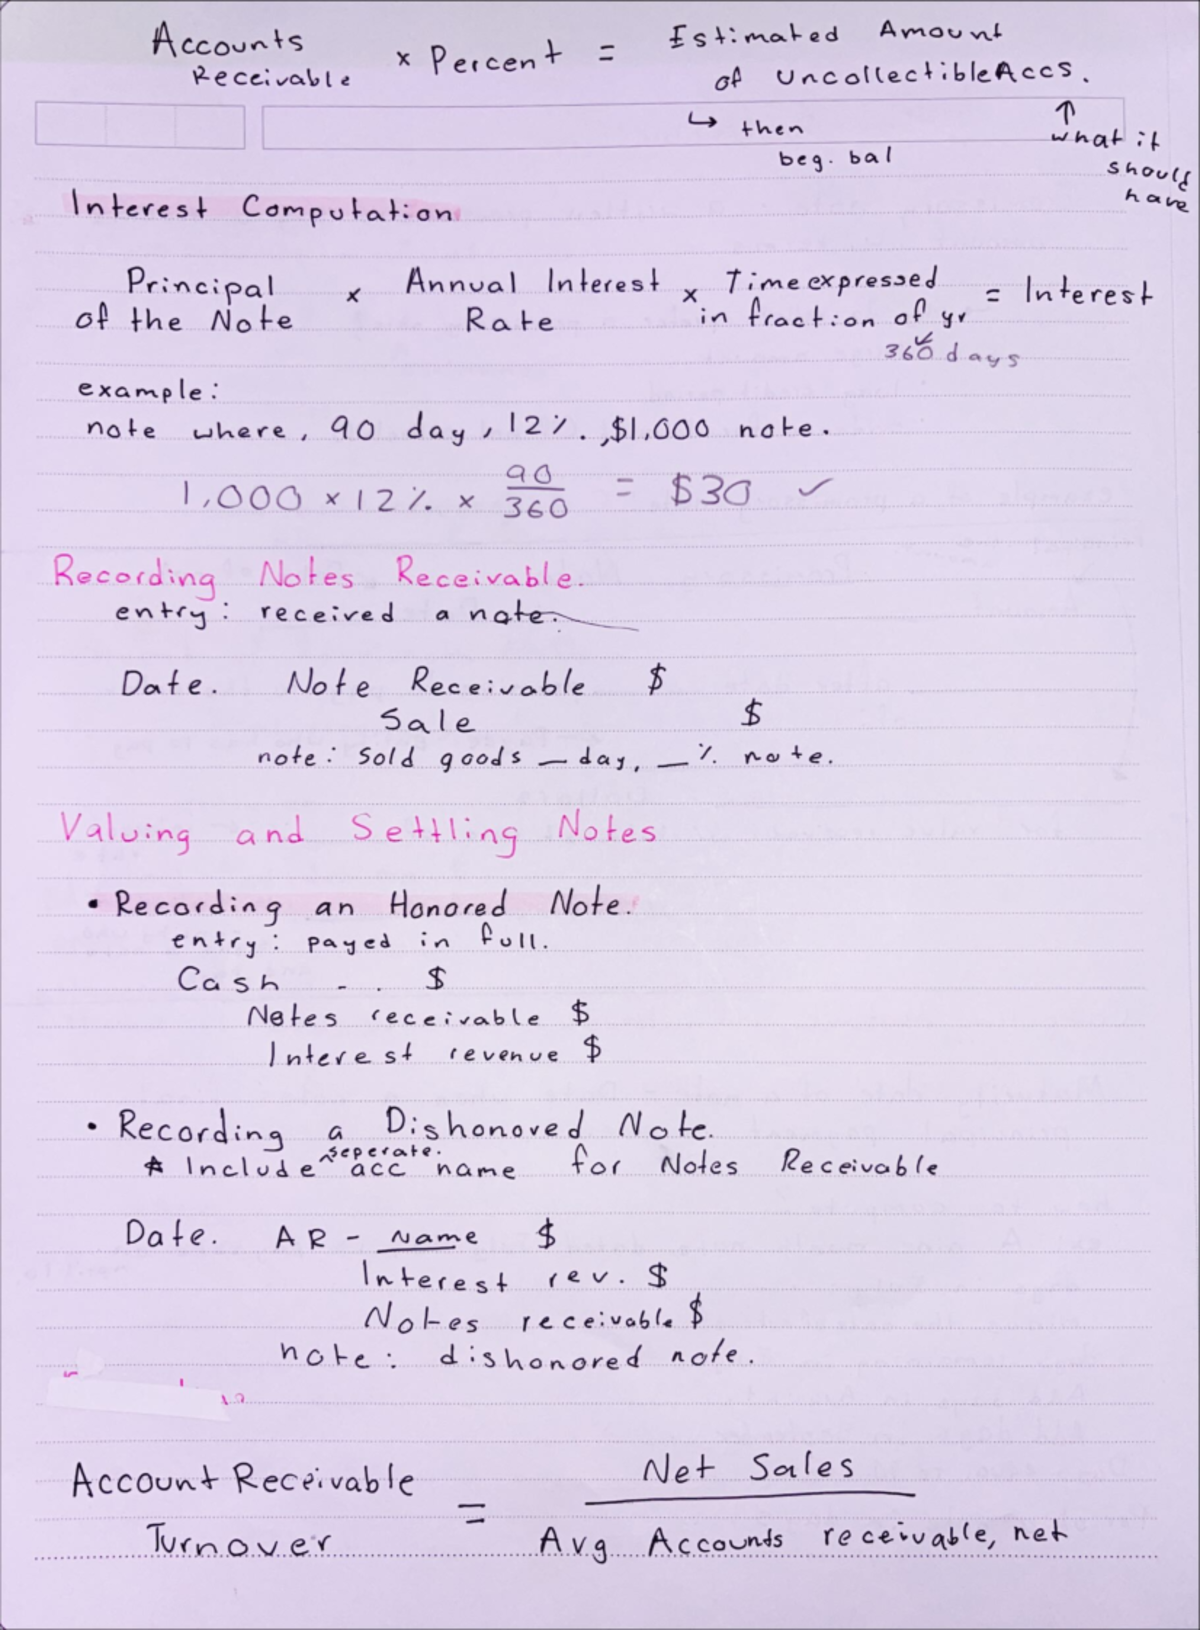 Accounts Receivable × Percent = Estimated Amount of UncollectibleAccs.
↳ then beg. bal
↑ what it should have
Interest Computation
Principal of the Note × Annual Interest Rate × Time expressed in fraction of yr = Interest
360 days
example:
note where, 90 day, 12%., $1,000 note.
1,000 × 12% × 90/360 = $30 ✓
Recording Notes Receivable.
entry: received a note.
Date. Note Receivable $
Sale $
note: Sold goods _ day, _% note.
Valuing and Settling Notes
• Recording an Honored Note.
entry: payed in full.
Cash - . $
Notes receivable $
Interest revenue $
• Recording a Dishonored Note.
* Include seperate. acc name for Notes Receivable
Date. AR - Name $
Interest rev. $
Notes receivable $
note: dishonored note.
Account Receivable Turnover = Net Sales / Avg Accounts receivable, net